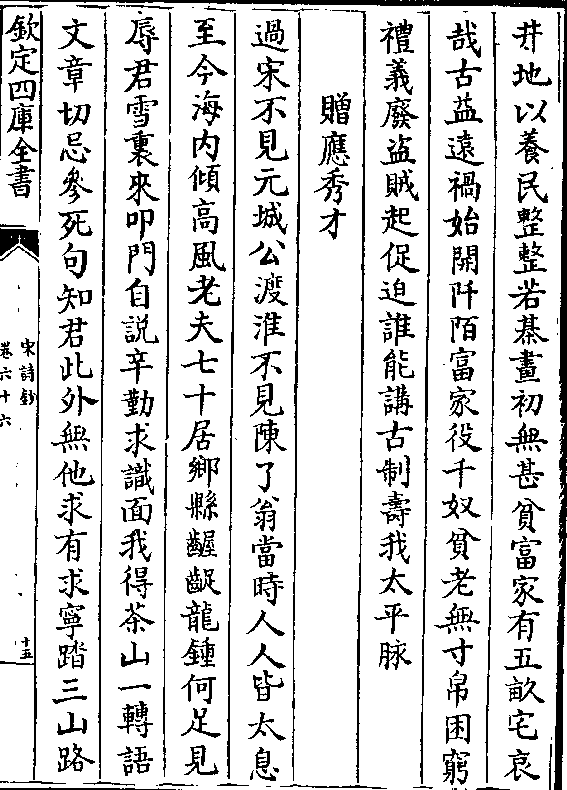 井地以養民整整若棊畫初無甚貧富家有五畝宅哀
哉古益遠禍始開阡陌富家役千奴貧老無寸帛困窮
禮義廢盗賊起促迫誰能講古制壽我太平脉
贈應秀才
過宋不見元城公渡淮不見陳了翁當時人人皆太息
至今海内傾高風老夫七十居鄉縣齷齪龍鍾何足見
辱君雪裏來叩門自説辛勤求識面我得茶山一轉語
文章切忌參死句知君此外無他求有求寧踏三山路
欽定四庫全書
宋詩鈔
卷六十六
十五